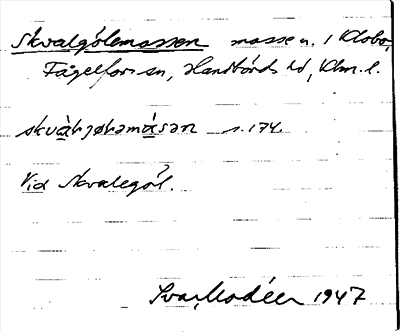 Skvalgölemossen mosse n. i Klobo,
Fågelfors sn, Handbörds hd, Klm. l.
skvàlʒøləmåsən s. 174.
Vid Skvalegöl.
Ivar Modéer 1947